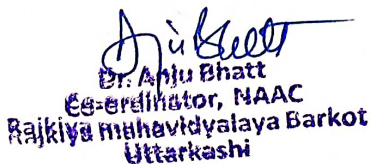 Anju Bhatt
Dr. Anju Bhatt
Co-ordinator, NAAC
Rajkiya mahavidyalaya Barkot
Uttarkashi